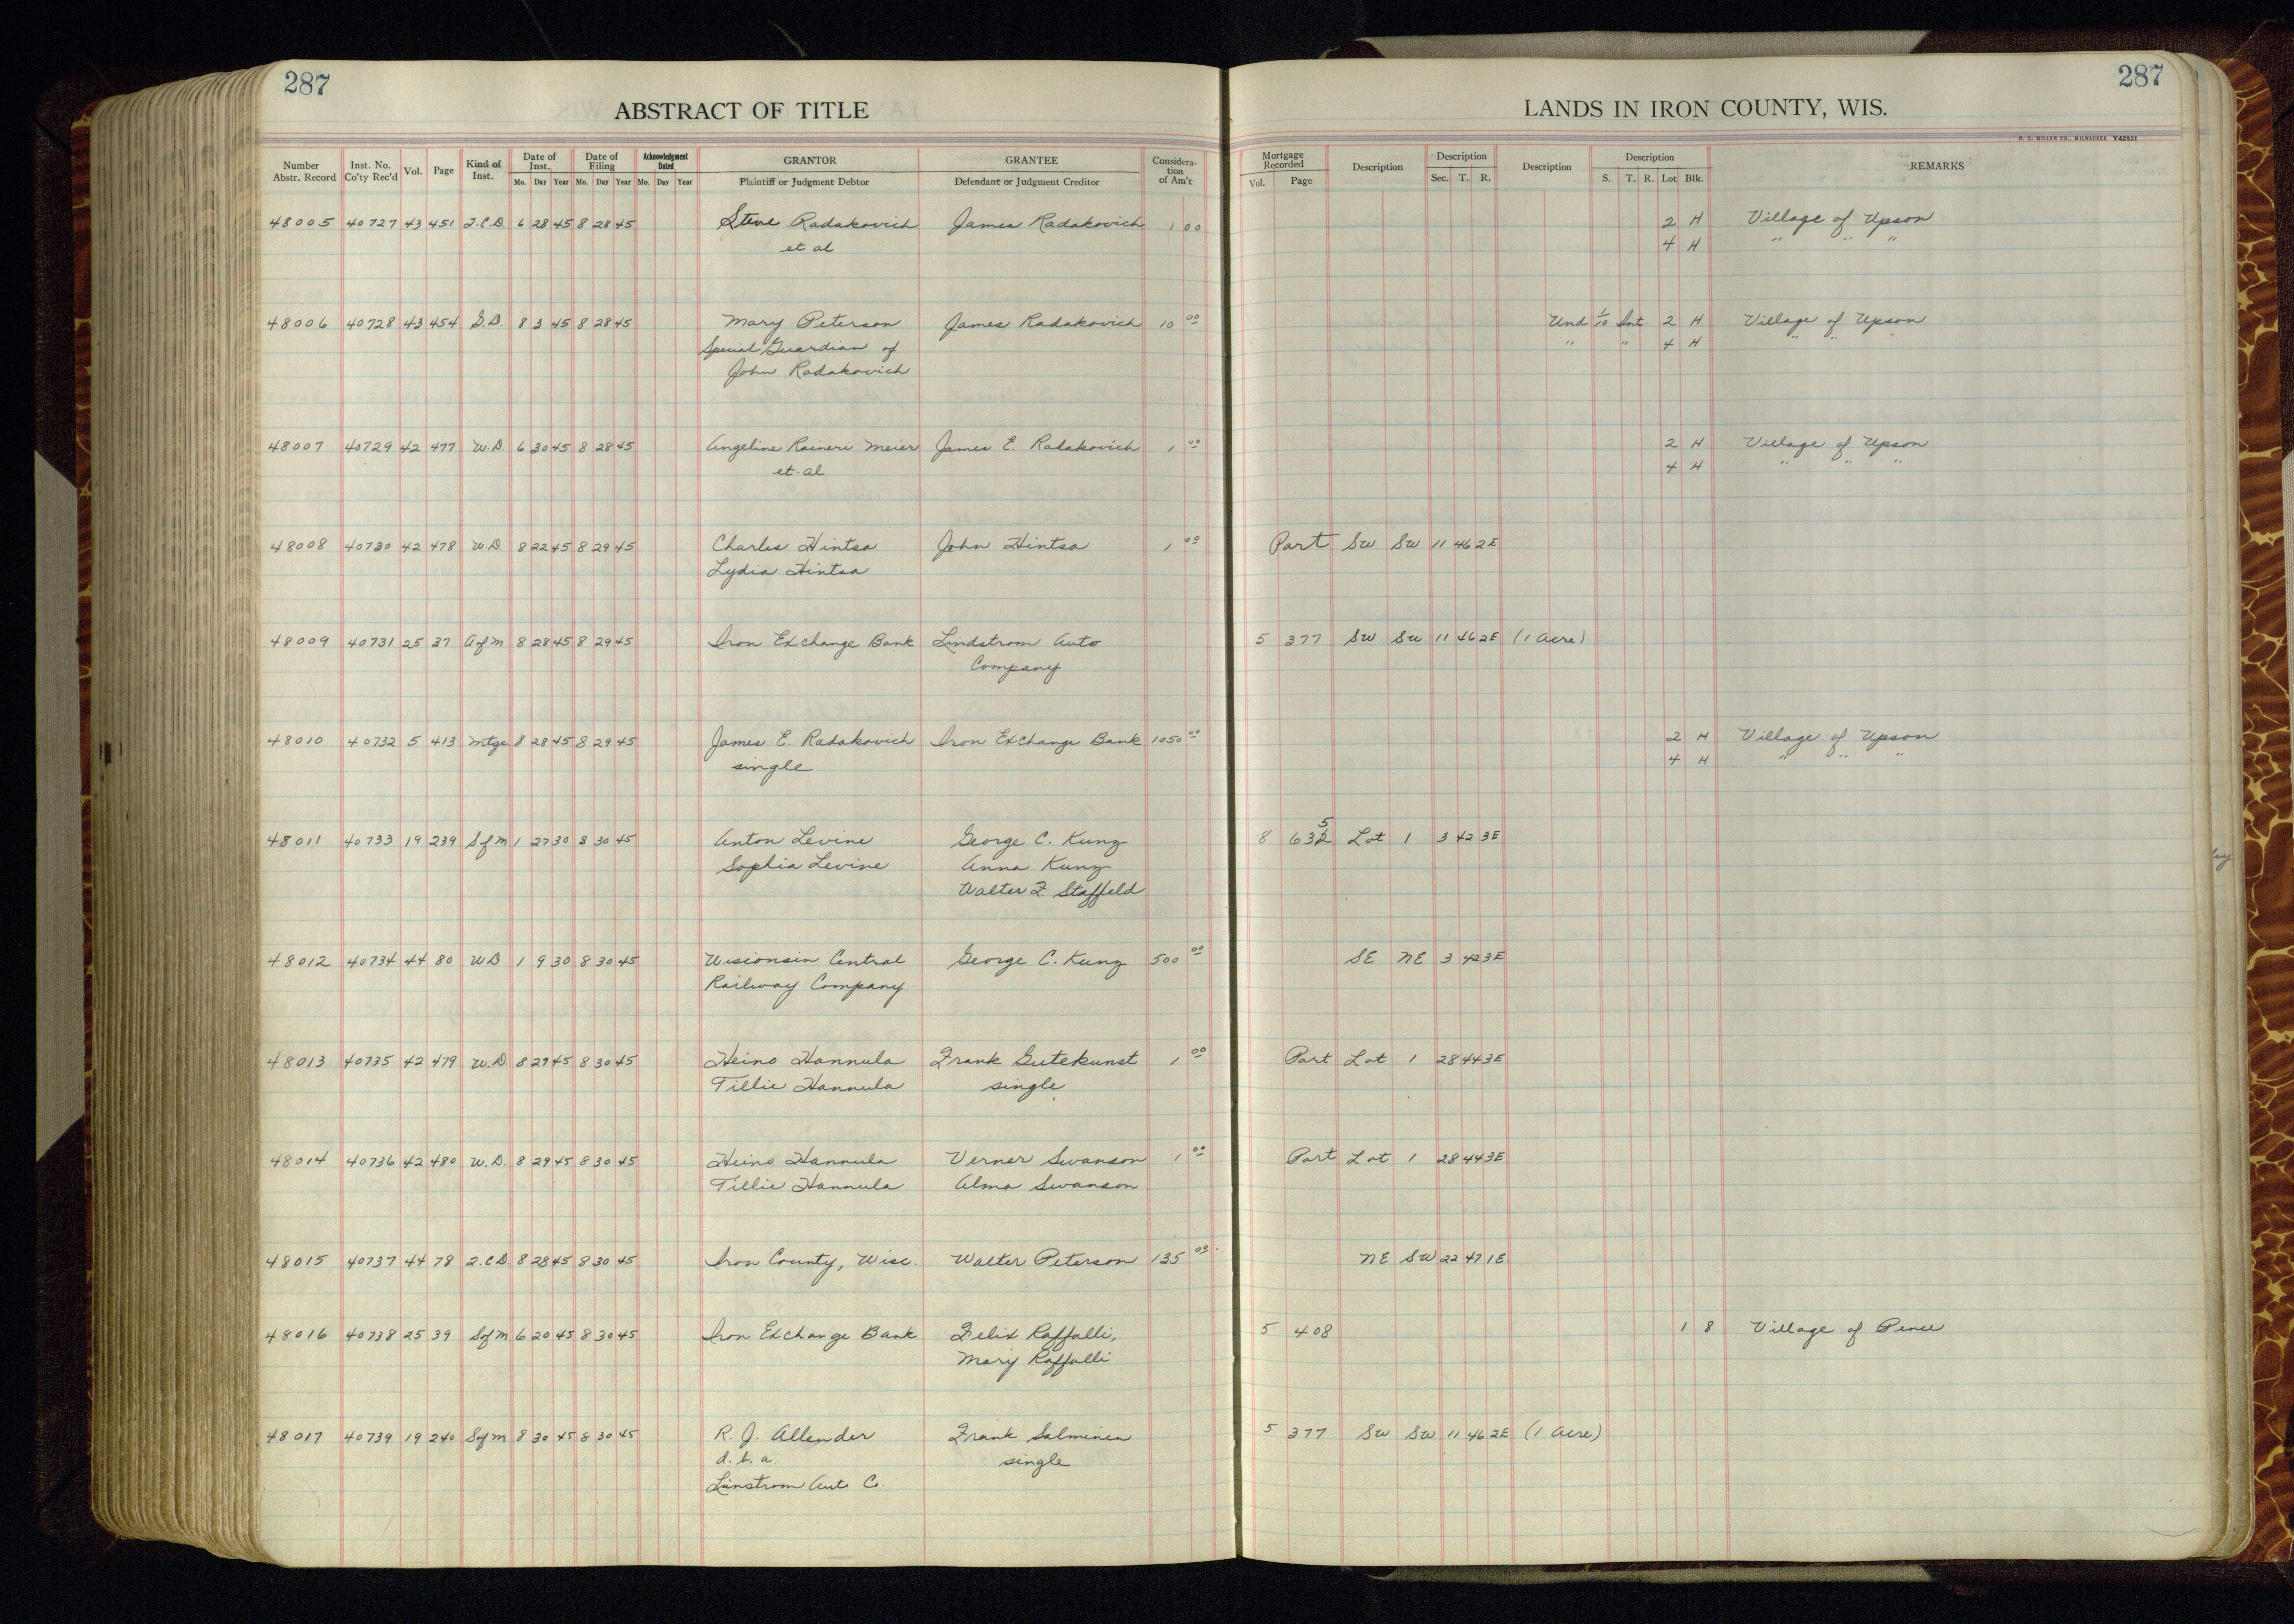 287
ABSTRACT OF TITLE
LANDS IN IRON COUNTY, WIS.
287
H. C. MILLER CO., MILWAUKEE Y42931
Number Abstr. Record Inst. No. Co'ty Rec'd Vol. Page Kind of Inst. Date of Inst. Mo. Day Year Date of Filing Mo. Day Year Acknowledgment Dated Mo. Day Year GRANTOR Plaintiff or Judgment Debtor GRANTEE Defendant or Judgment Creditor Considera-tion of Am't
Mortgage Recorded Vol. Page Description Description Sec. T. R. Description Description S. T. R. Lot Blk. REMARKS
48005 40727 43 451 2.C.D. 6 28 45 8 28 45 Steve Radakovich James Radakovich 1 00 2 H Village of Upson
et al 4 H " " "
48006 40728 43 454 G.D. 8 3 45 8 28 45 Mary Peterson James Radakovich 10 00 Und 1/10 Int. 2 H Village of Upson
Special Guardian of " " 4 H " " "
John Radakovich
48007 40729 42 477 W.D. 6 30 45 8 28 45 Angeline Raineri Meier James E. Radakovich 1 00 2 H Village of Upson
et al 4 H " " "
48008 40730 42 478 W.D. 8 22 45 8 29 45 Charles Hintsa John Hintsa 1 00 Part SW SW 11 46 2E
Lydia Hintsa
48009 40731 25 37 A of M 8 28 45 8 29 45 Iron Exchange Bank Lindstrom Auto 5 377 SW SW 11 46 2E (1 Acre)
Company
48010 40732 5 413 Mtge 8 28 45 8 29 45 James E. Radakovich Iron Exchange Bank 1050 00 2 H Village of Upson
single 4 H " " "
48011 40733 19 239 S of M 1 27 30 8 30 45 Anton Levine George C. Kunz 8 635 Lot 1 3 42 3E
Sophia Levine Anna Kunz
Walter F. Staffeld
48012 40734 44 80 WD 1 9 30 8 30 45 Wisionsin Central George C. Kunz 500 00 SE NE 3 42 3E
Railway Company
48013 40735 42 479 W.D. 8 29 45 8 30 45 Heino Hannula Frank Gutekunst 1 00 Part Lot 1 28 44 3E
Tillie Hannula single
48014 40736 42 480 W.D. 8 29 45 8 30 45 Heino Hannula Verner Swanson 1 00 Part Lot 1 28 44 3E
Tillie Hannula Alma Swanson
48015 40737 44 78 2.C.D. 8 28 45 8 30 45 Iron County, Wisc. Walter Peterson 135 00 NE SW 22 47 1E
48016 40738 25 39 S of M 6 20 45 8 30 45 Iron Exchange Bank Felix Raffalli, 5 408 1 8 Village of Pence
Mary Raffalli
48017 40739 19 240 S of M 8 30 45 8 30 45 R. J. Allender Frank Salminen 5 377 SW SW 11 46 2E (1 Acre)
d. b. a. single
Linstrom Aut. C.